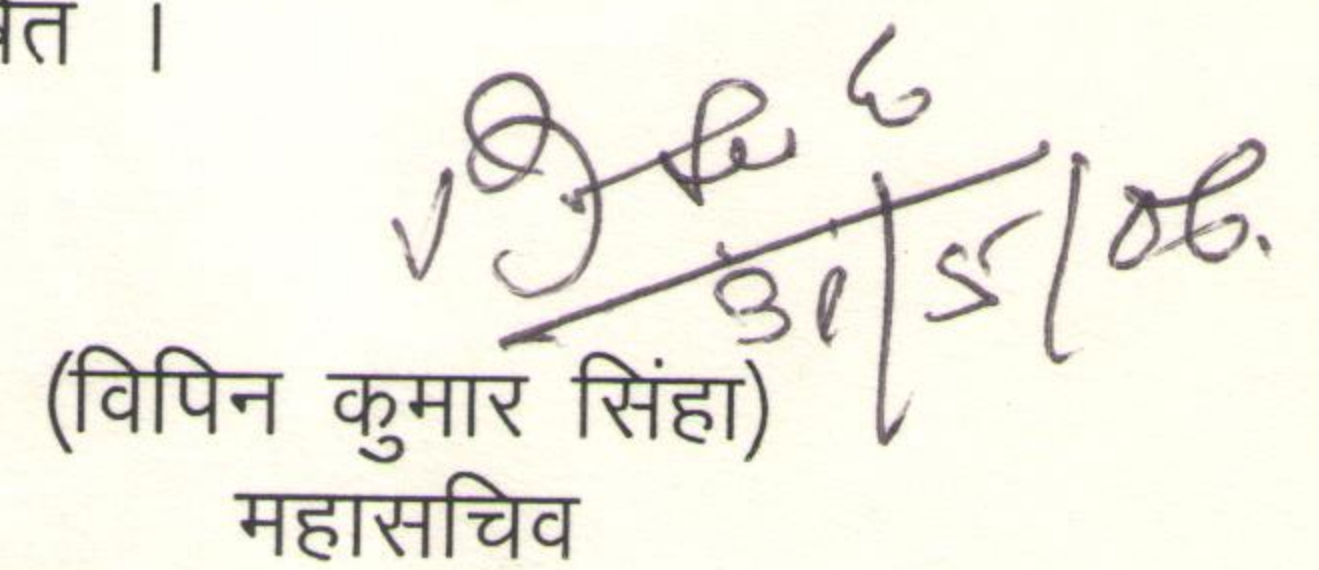 ।
31/5/06.
(विपिन कुमार सिंहा)
महासचिव